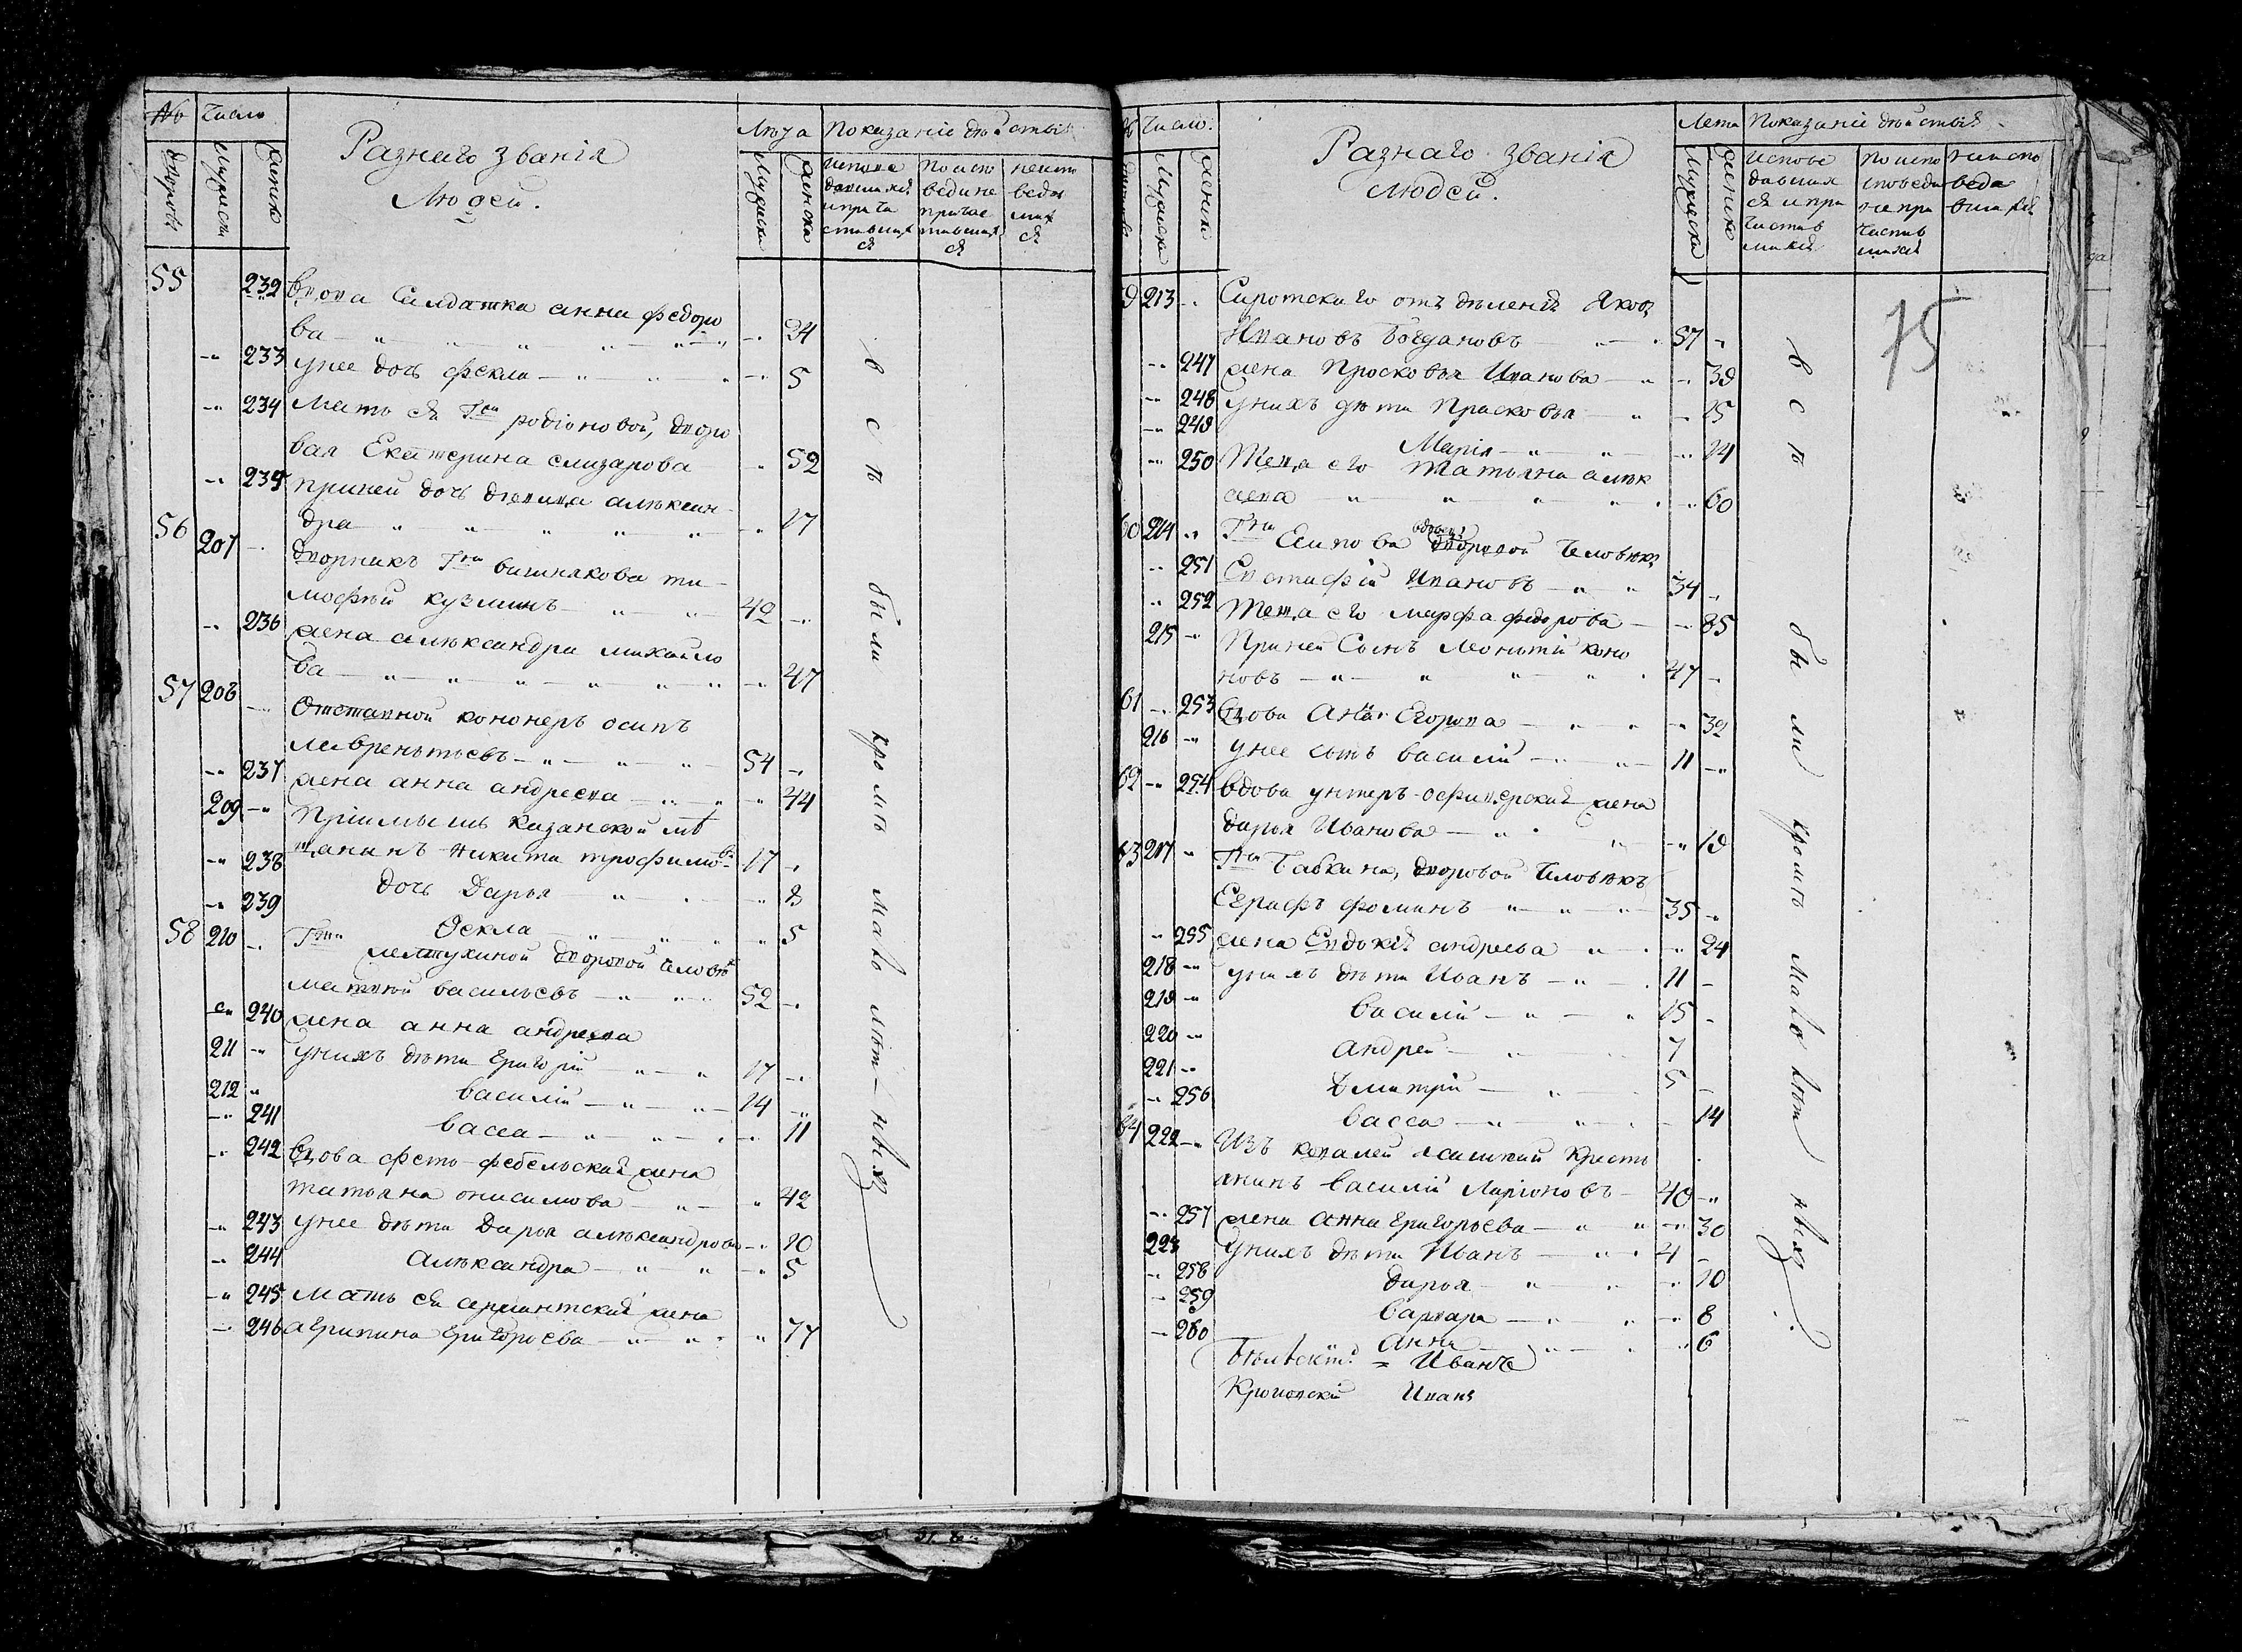 № Число
дворовъ мужеска женска
Разнаго званія
Людей.
Лѣта Показаніе дѣйствія
Мужеска женска
исповедавшихся и причастившихся
по исповеди не причастившихся
не исповедавшихся
55 232 вдова Салдатка анна федоро
ва 34
233 у нее дочь фекла 5
234 Мать ея Гжи родіоновой, дворо
вая Екатерина елизарова 52
235 при ней дочь девица алѣксан-
дра 17
56 207 дворникъ Гна вишнякова ти-
мофѣй кузминъ 42
236 жена алѣксандра михайло
ва 47
57 208 Отставной кононеръ осипъ
лаврентьевъ 54
237 жена анна андреева 44
209 Пріимышъ казанской мѣ
щанинъ никита трофимовъ 17
238 дочь Дарья 8
239 Фекла 5
58 210 Гжи дворовой человѣкъ
матвѣй васильевъ 52
240 жена анна андреева
211 у нихъ дѣти григорій 17
212 василій 14
241 васса 11
242 вдова фетфебельская жена
татьяна онисимова 42
243 у нее дѣти Дарья алѣксандрова 10
244 алѣксандра 5
245 Мать ея сержантская жена
246 агрипина григорьева 77
всѣ были кромѣ мало лѣт-ныхъ
№ Число.
мужеска женска
Разнаго званія
людей.
Лета Показаніе дѣйствія
Мужеска женска
исповедавшихся и причастившихся
по исповеди не причастившихся
не исповедавшихся
75
59 213 Сиротскаго отъ дѣленія Яковъ
Ивановъ Богдановъ 57
247 жена Просковья Иванова 39
248 у нихъ дѣти Прасковья 15
249 Марія 14
250 Теща его Татьяна алѣк
аева 60
60 214 Гна Есипова вдовецъ дворовой человѣкъ
251 Евстафій Ивановъ 34
252 Теща его марфа федорова 85
215 При ней Сынъ Леонтій коно
новъ 47
61 253 вдова Анна Егорова 32
216 у нее сынъ василій 11
62 254 вдова унтеръ-офицерская жена
дарья Иванова 19
63 217 Гна Бабкина, дворовой человѣкъ
Ееграфъ фоминъ 35
255 жена Евдокія андреева 24
218 у нихъ дѣти Иванъ 11
219 василій 15
220 андрей 7
221 Дмитрій 5
256 васса 14
64 222 Изъ крестья
янинъ василій Ларіоновъ 40
257 жена анна григорьева 30
223 у нихъ дѣти Иванъ 4
258 дарья 10
259 варвара 8
260 анна 6
всѣ были кромѣ мало лѣт ныхъ
Иванъ
Иванъ